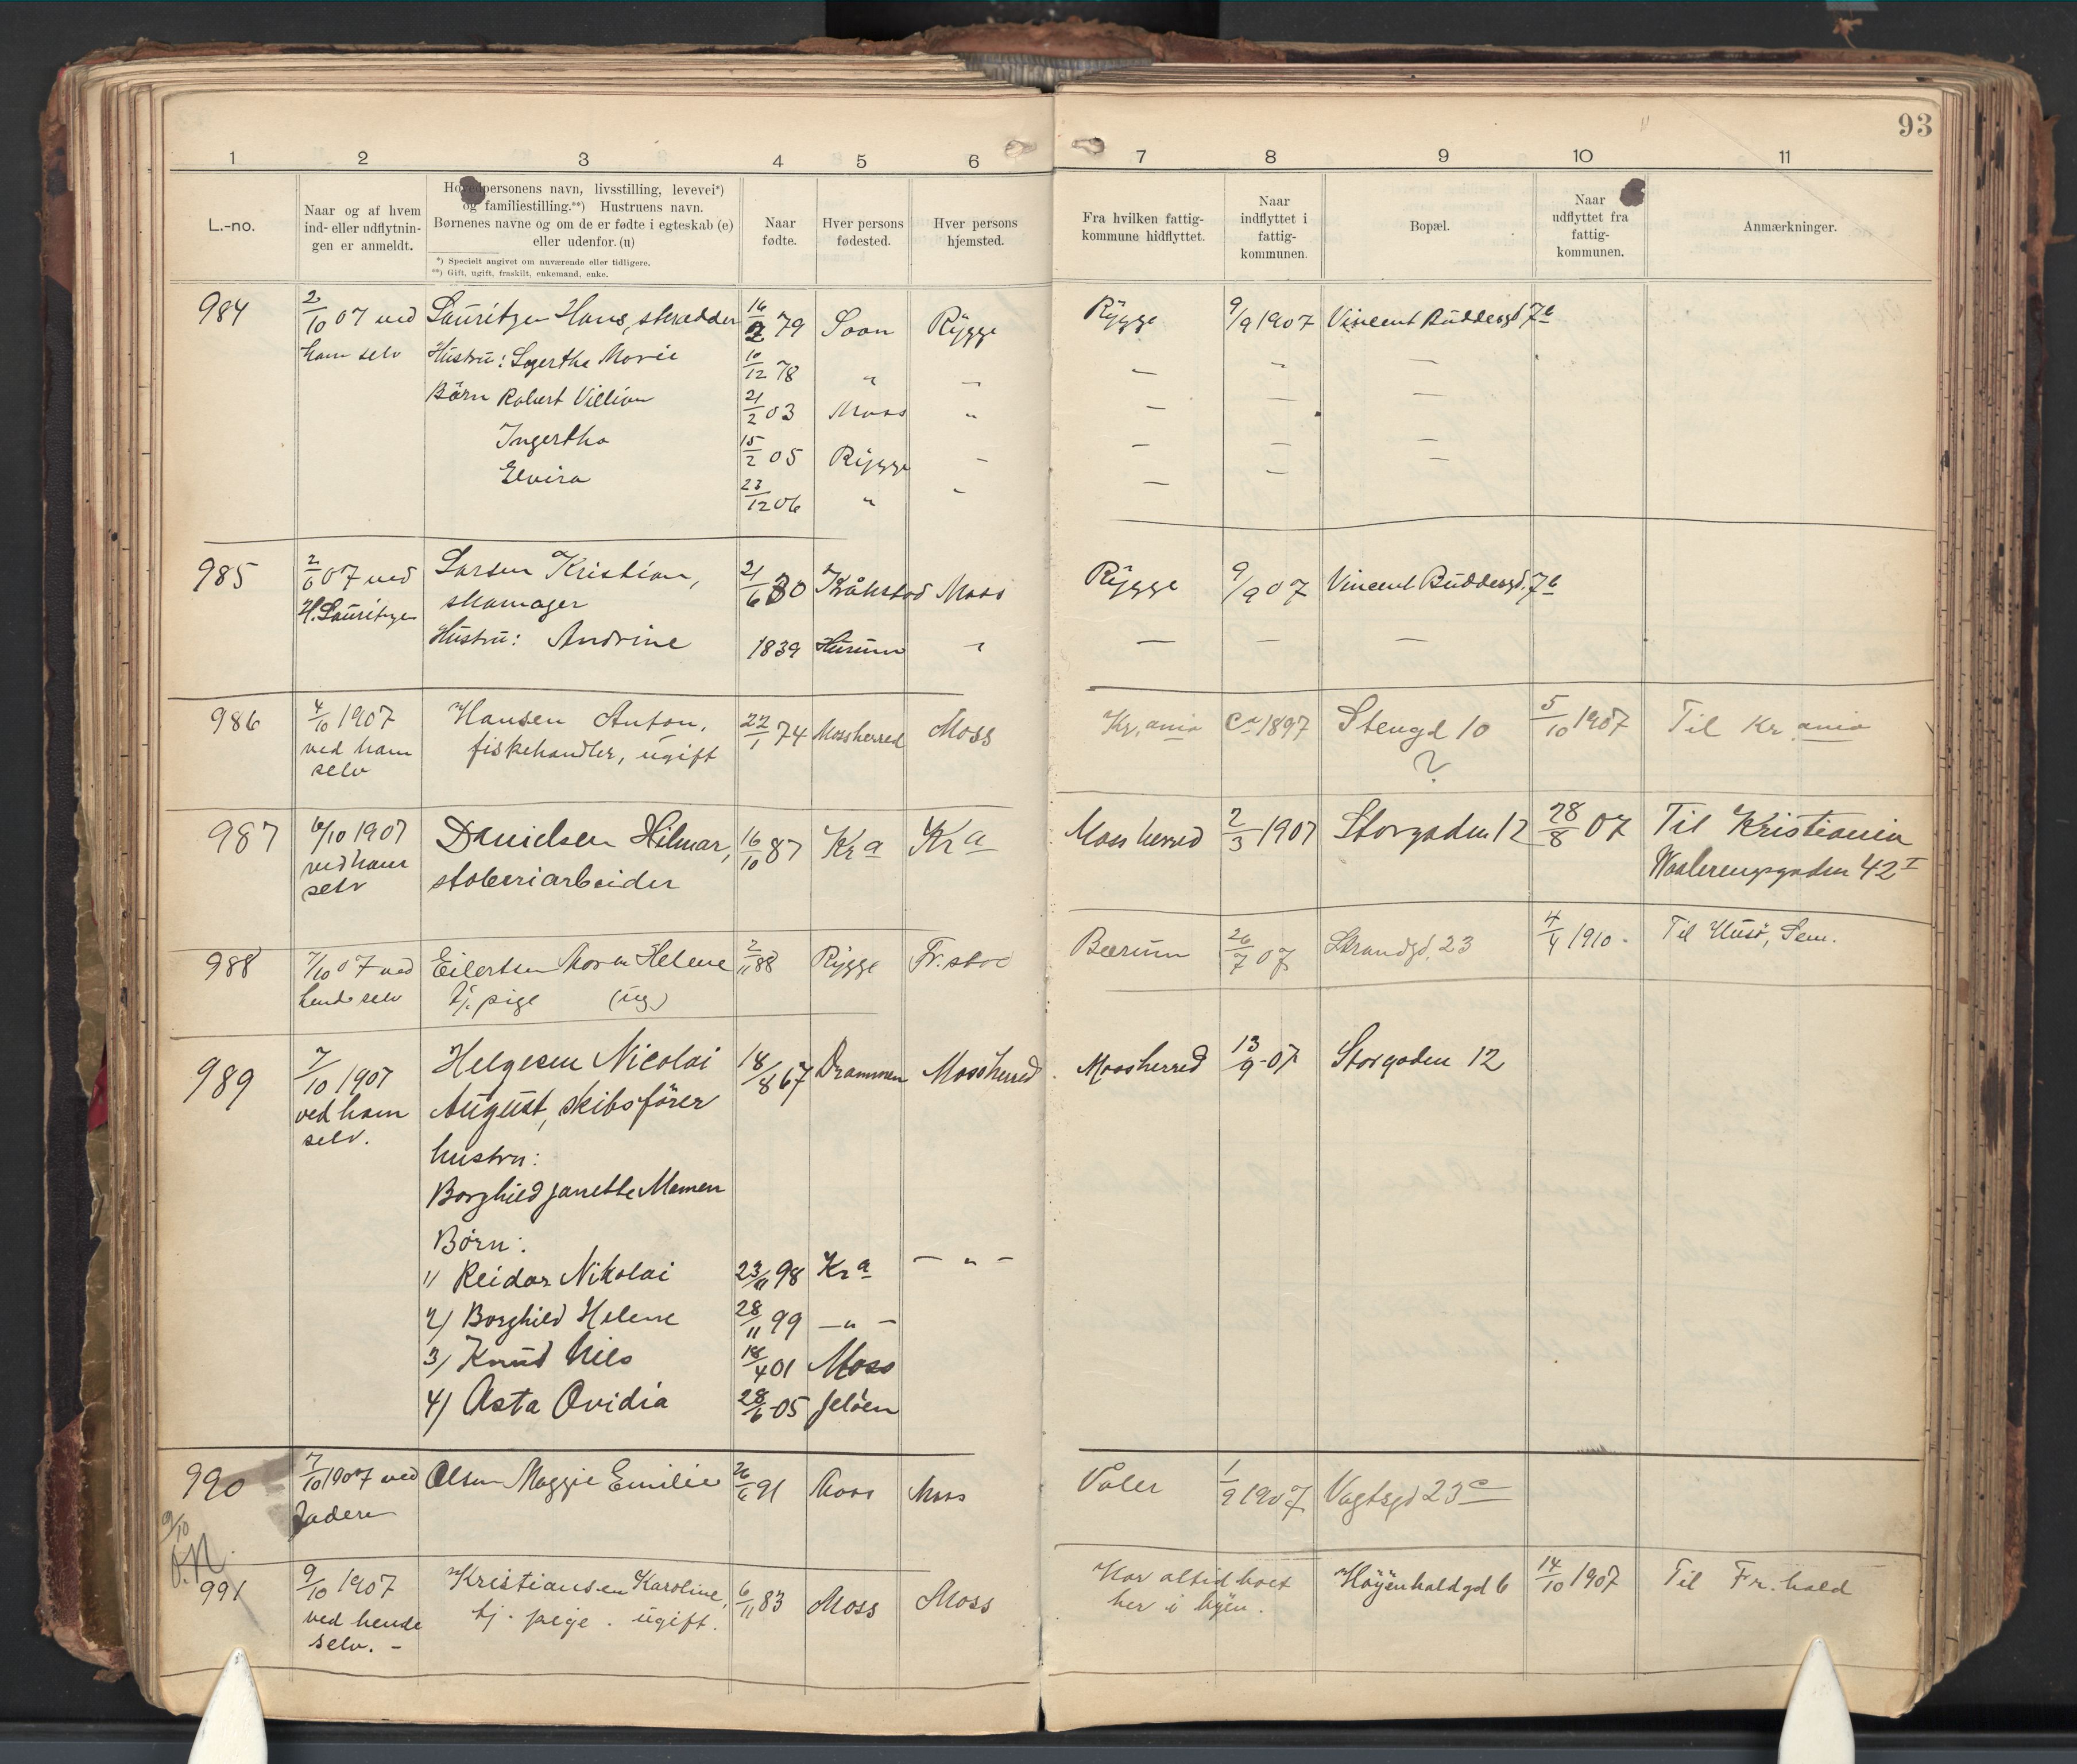 93
1 2 3 4 5 6 7 8 9 10 11
L.-no.
Naar og af hvem
ind- eller udflytnin-
gen er anmeldt.
Hovedpersonens navn, livsstilling, levevei*)
og familiestilling.**) Hustruens navn.
Børnenes navne og om de er fødte i egteskab (e)
eller udenfor. (u)
*) Specielt angivet om nuværende eller tidligere.
**) Gift, ugift, fraskilt, enkemand, enke.
Naar
fødte.
Hver persons
fødested.
Hver persons
hjemsted.
Fra hvilken fattig-
kommune hidflyttet.
Naar
indflyttet i
fattig-
kommunen.
Bopæl.
Naar
udflyttet fra
fattig-
kommunen.
Anmærkninger.
984 2/10 07 ved Lauritzen Hans, skrædder 16/2 79 Soon Rygge Rygge 9/9 1907 Vincent Buddesgd 7b
ham selv Hustru: Marie 10/12 78 " — — — —
Børn Robert Villiam 21/2 03 Moss " — — —
Ingertha 15/2 05 Rygge — — — —
Elvira 23/12 06 " " — — —
985 2/10 07 ved Larsen Kristian, 21/6 30 Kråkstad Moss Rygge 9/9 07 Vincent Buddesgd. 7b
H. Lauritzen skomager
Hustru: Andrine 1839 Hurum " — — —
986 4/10 1907 Hansen Anton, 22/1 74 Mossherred Moss Kr.ania Ca 1897 Stengd 10 5/10 1907 Til Kr.ania
ved ham fiskehandler, ugift ?
selv
987 6/10 1907 Danielsen Hilmar, 16/10 87 Kra Kra Mossherred 2/3 1907 Storgaden 12 28/8 07 Til Kristiania
ved ham støberiarbeider Waalerengsgaden 42 I
selv
988 7/10 07 ved Eilertsen Helene 2/11 88 Rygge Fr.stad Bærum 26/7 07 Strandgd. 23 4/4 1910. Til Husø, Sem.
hende selv tj. pige (ug.)
989 7/10 1907 Helgesen Nicolai 18/8 67 Drammen Mossherred Mossherred 13/9-07 Storgaden 12
ved ham August, skibsfører
selv. hustru:
Borghild Janette Mamen
Børn:
1) Reidar Nikolai 23/11 98 Kra — " —
2) Borghild Helene 28/11 99 — " —
3) Knud Nils 18/4 01 Moss
4) Asta Ovidia 28/6-05 Jeløen
990 7/10 1907 ved Olsen Maggie Emilie 26/6 91 Moss Moss Våler 1/9 1907 Vogtsgd 23c
faderen
9/10
991 9/10 1907 Kristiansen Karoline, 6/11 83 Moss Moss Har altid boet Høyenhaldgd 6 14/10 1907 Til Fr.hald
ved hende tj. pige. ugift. her i byen.
selv. –